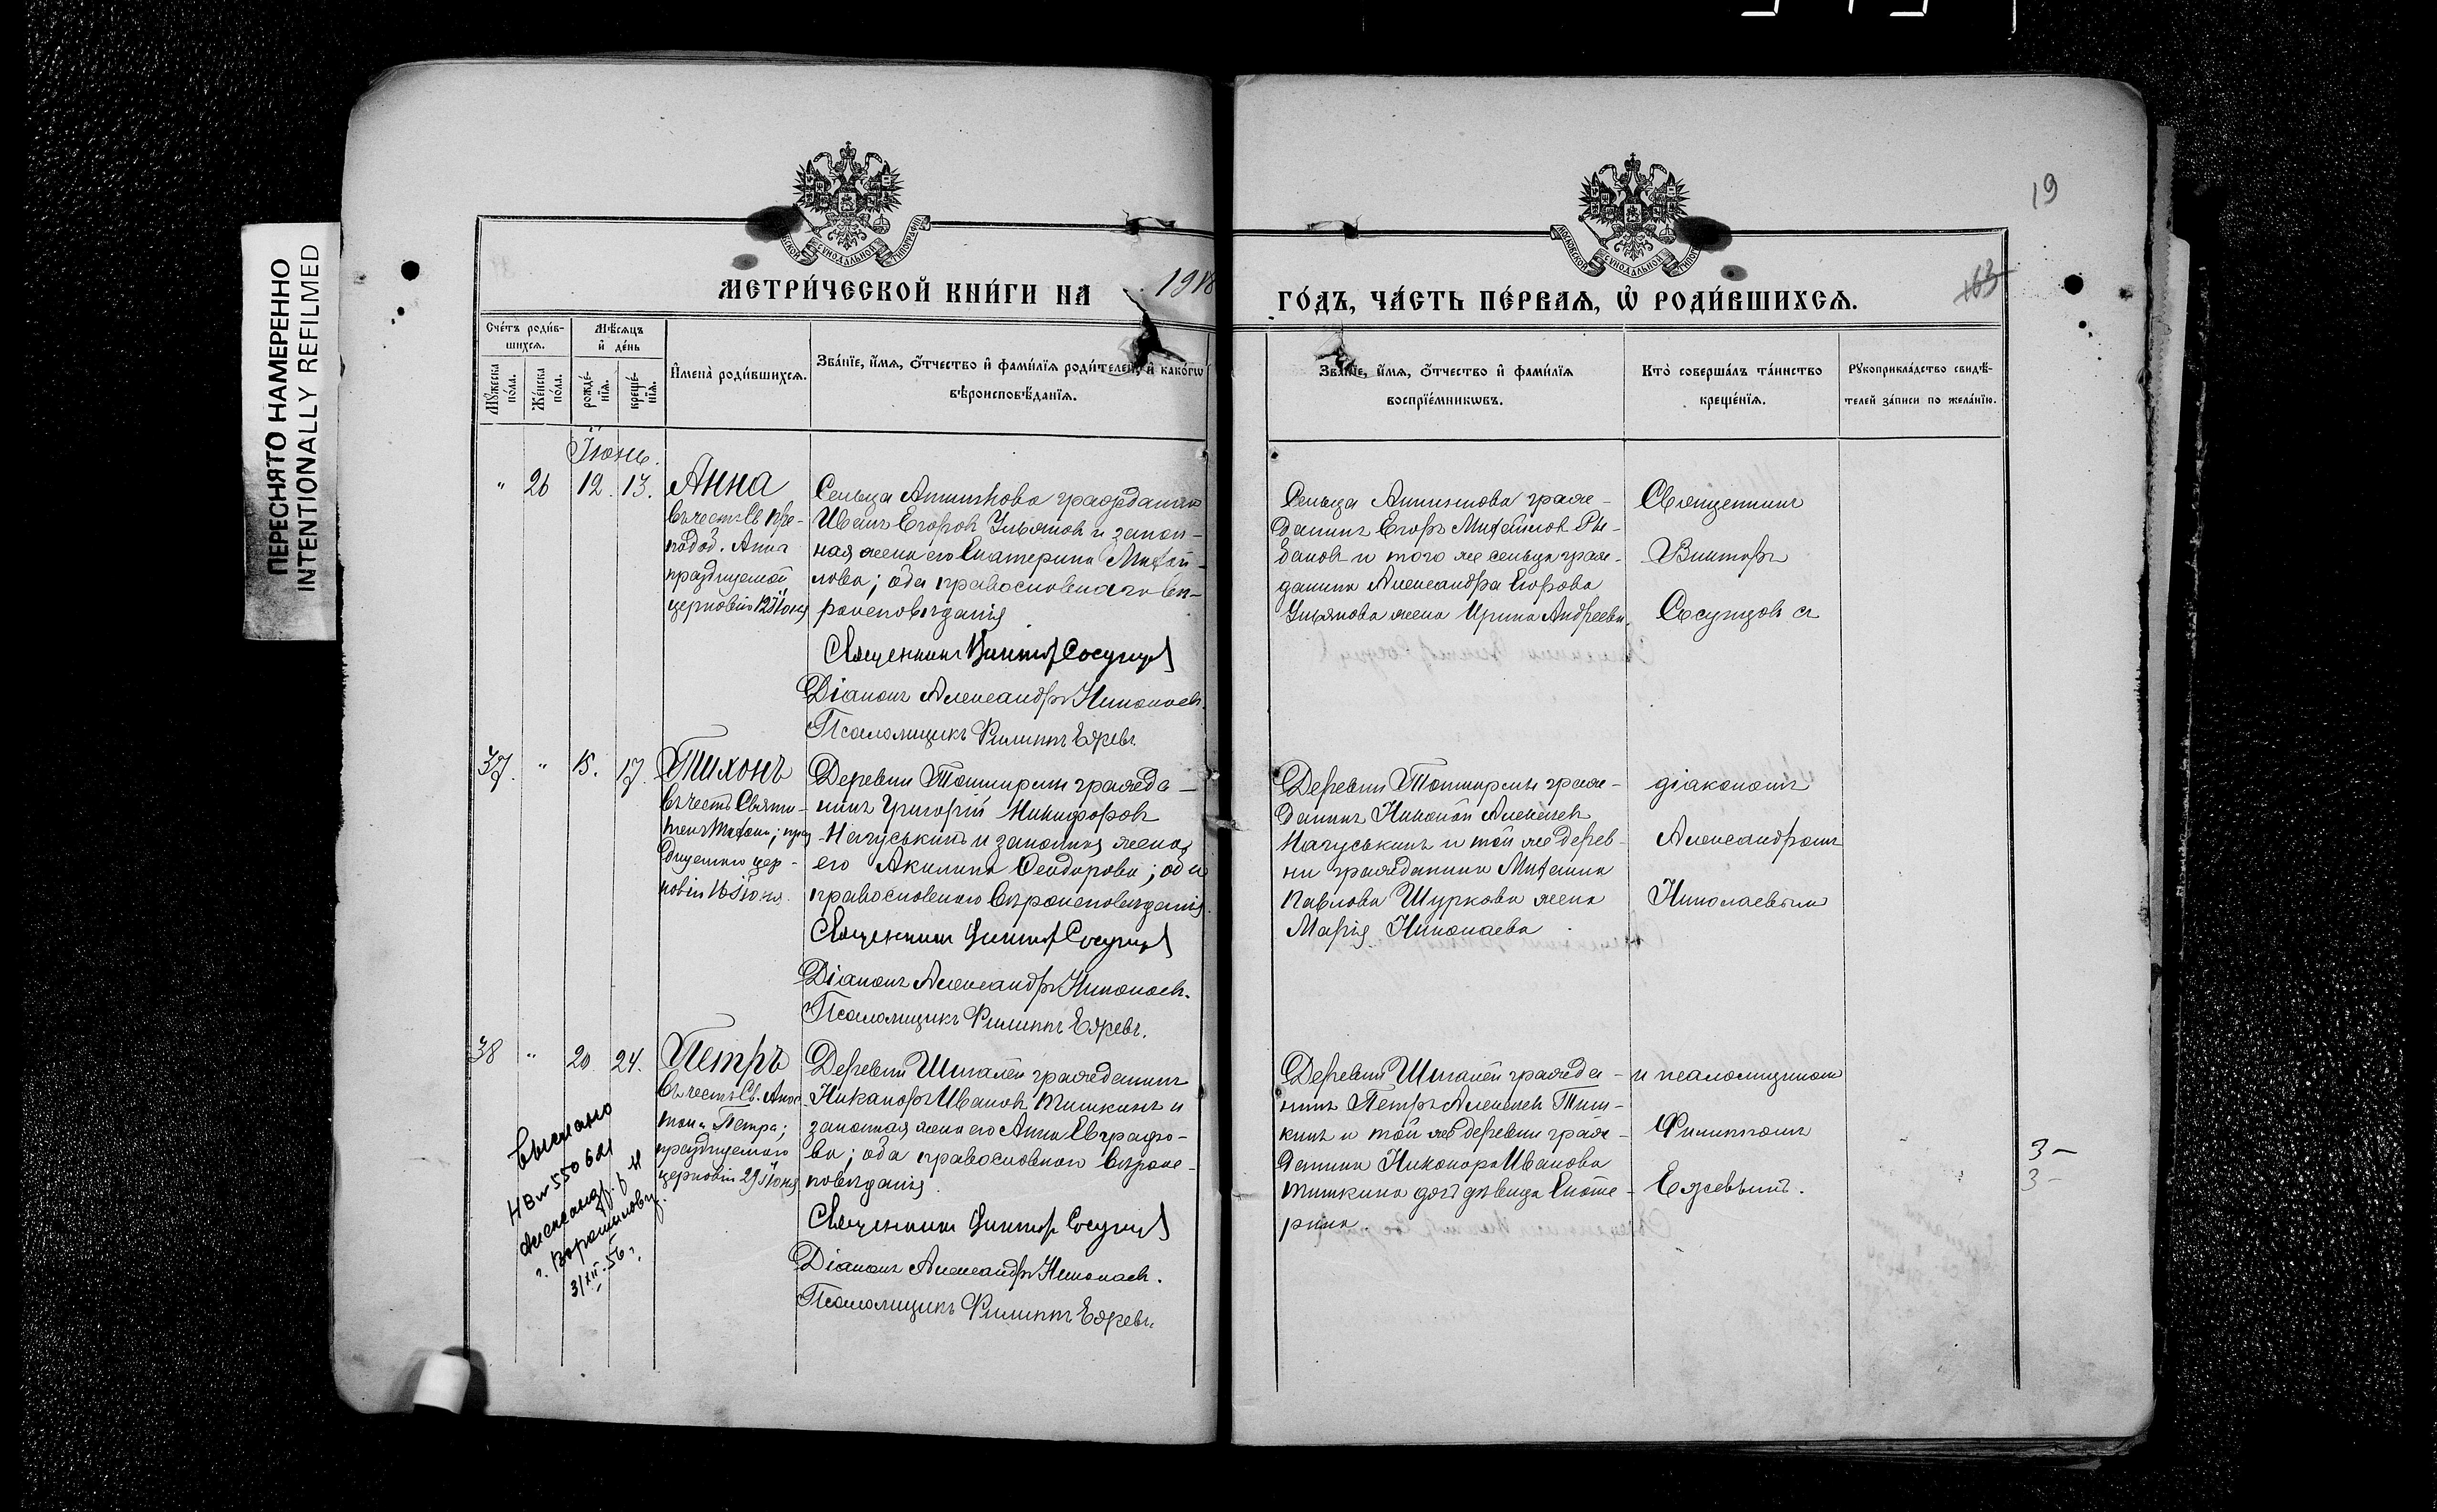 ПЕРЕСНЯТО НАМЕРЕННО
INTENTIONALLY REFILMED
19
163
МЕТРИ́ЧЕСКОЙ КНИ́ГИ НА 1918
ГО́ДЪ, ЧА́СТЬ ПЕ́РВАѦ, Ѡ҆ РОДИ́ВШИХСѦ.
Сче́тъ роди́в-
шихсѧ.
Мꙋ́жеска по́ла.
Же́нска по́ла.
Мѣ́сѧцъ и҆ де́нь
рожде́-нїѧ.
креще́-нїѧ.
И҆мена̀ роди́вшихсѧ.
Зва́нїе, и҆́мѧ, ѻ҆́тчество и҆ фами́лїѧ роди́телей, и҆ како́гѡ
вѣроисповѣ́данїѧ.
Зва́нїе, и҆́мѧ, ѻ҆́тчество и҆ фами́лїѧ
воспрїе́мникѡвъ.
Кто̀ соверша́лъ та́инство
креще́нїѧ.
Рꙋкоприкла́дство свидѣ́-
телей за́писи по жела́нїю.
Іюнь.
" 26 12. 13. Анна
въ честь св. пре-
под. Анны
празднуемой
церковію 12 Іюня
Сельца гражданинъ
Иванъ Егоровъ Ульяновъ и закон-
ная жена его Екатерина Михай-
лова; оба православнаго вѣ-
роисповѣданія
Священникъ Викторъ
Діаконъ Александръ Николаевъ.
Псаломщикъ Филиппъ
Сельца граж-
данинъ Егоръ Михайловъ
и того же сельца граж-
данина Александра Егорова
Ульянова жена Ирина Андреева.
Священникъ
Викторъ
37. " 15. 17. Тихонъ
въ честь Святи-
теля Тихона; праз
днуемаго цер-
ковію 16 Іюня.
Деревни гражда-
нинъ Григорій Никифоровъ
и законная жена
его Акилина Ѳеодорова; оба
православнаго вѣроисповѣданія.
Священникъ Викторъ
Діаконъ Александръ Николаевъ.
Псаломщикъ Филиппъ
Деревни граж-
данинъ Николай Алексѣевъ
и той же дерев-
ни гражданина Михаила
Павлова Шуркова жена
Марія Николаева
діакономъ
Александромъ
Николаевымъ
38 " 20 24. Петръ
въ честь Св. Апос-
тола Петра;
празднуемаго
церковію 29 Іюня
Деревни гражданинъ
Никаноръ Ивановъ Тишкинъ и
законная жена его Анна Евграфо-
ва; оба православнаго вѣроис-
повѣданія.
Священникъ Викторъ
Діаконъ Александръ Николаевъ.
Псаломщикъ Филиппъ
Деревни гражда-
нинъ Петръ Алексѣевъ Тиш-
кинъ и той же деревни граж-
данина Никанора Иванова
Тишкина дочь дѣвица Екате-
рина.
и псаломщикомъ
Филиппомъ
3 -
3 -
Выслано
550621
31 XII. 56 г.